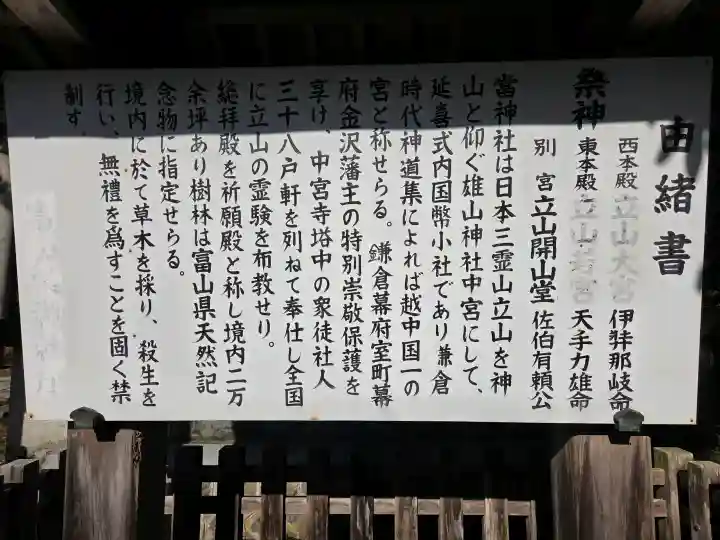 由緒書
祭神
西本殿 立山大宮 伊弉那岐命
東本殿 立山若宮 天手力雄命
別 宮 立山開山堂 佐伯有頼公
當神社は日本三霊山立山を神
山と仰ぐ雄山神社中宮にして、
延喜式内国幣小社であり兼倉
時代神道集によれば越中国一の
宮と称せらる。鎌倉幕府室町幕
府金沢藩主の特別崇敬保護を
享け、中宮寺塔中の衆徒社人
三十八戸軒を列ねて奉仕し全国
に立山の霊験を布教せり。
総拝殿を祈願殿と称し境内二万
余坪あり樹林は富山県天然記
念物に指定せらる。
境内に於て草木を採り、殺生を
行い、無禮を爲すことを固く禁
制す。